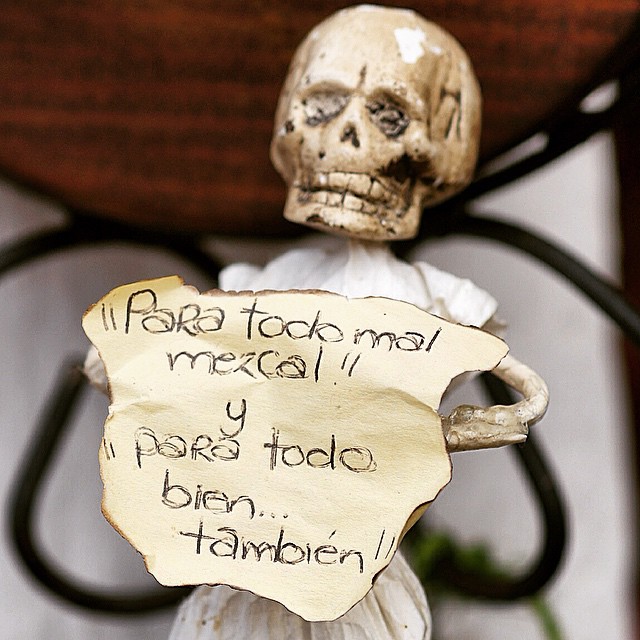 ¡¡Para todo mal
mezcal!!
y
¡¡para todo
bien...
también!!